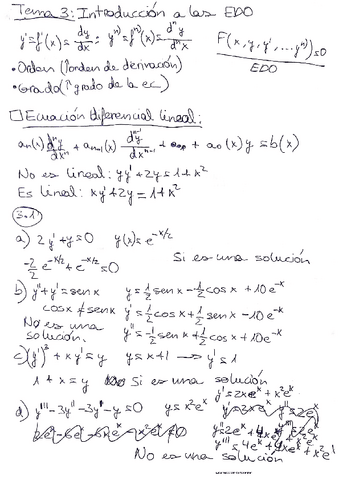 Tema 3: Introducción a las EDO
y'=f'(x)=dy/dx ; y^n)=f^n)(x)=d^n y/d^n x
F(x,y,y',...y^n))=0
EDO
•Orden (1ºorden de derivación)
•Grado (1º grado de la ec)
□Ecuación diferencial lineal:
an(x) d^n y/dx^n + an-1(x) d^n-1/dx^n-1 +...+ a0(x)y=b(x)
No es lineal: yy'+2y=1+x²
Es lineal: xy'+2y=1+x²
3.1
a) 2y'+y=0 y(x)=e^-x/2
-2/2 e^-x/2 + e^-x/2=0 Si es una solución
b) y''+y'=senx y=1/2 senx-1/2 cosx+10e^-x
cosx≠senx y'=1/2 cosx+1/2 senx-10e^-x
No es una solución. y''=-1/2 senx+1/2 cosx+10e^-x
c) (y')³+xy'=y y=x+1 → y'=1
1+x=y Si es una solución
d) y'''-3y''-3y'-y=0 y=x²e^x y'=2xe^x+x²e^x
No es una solución